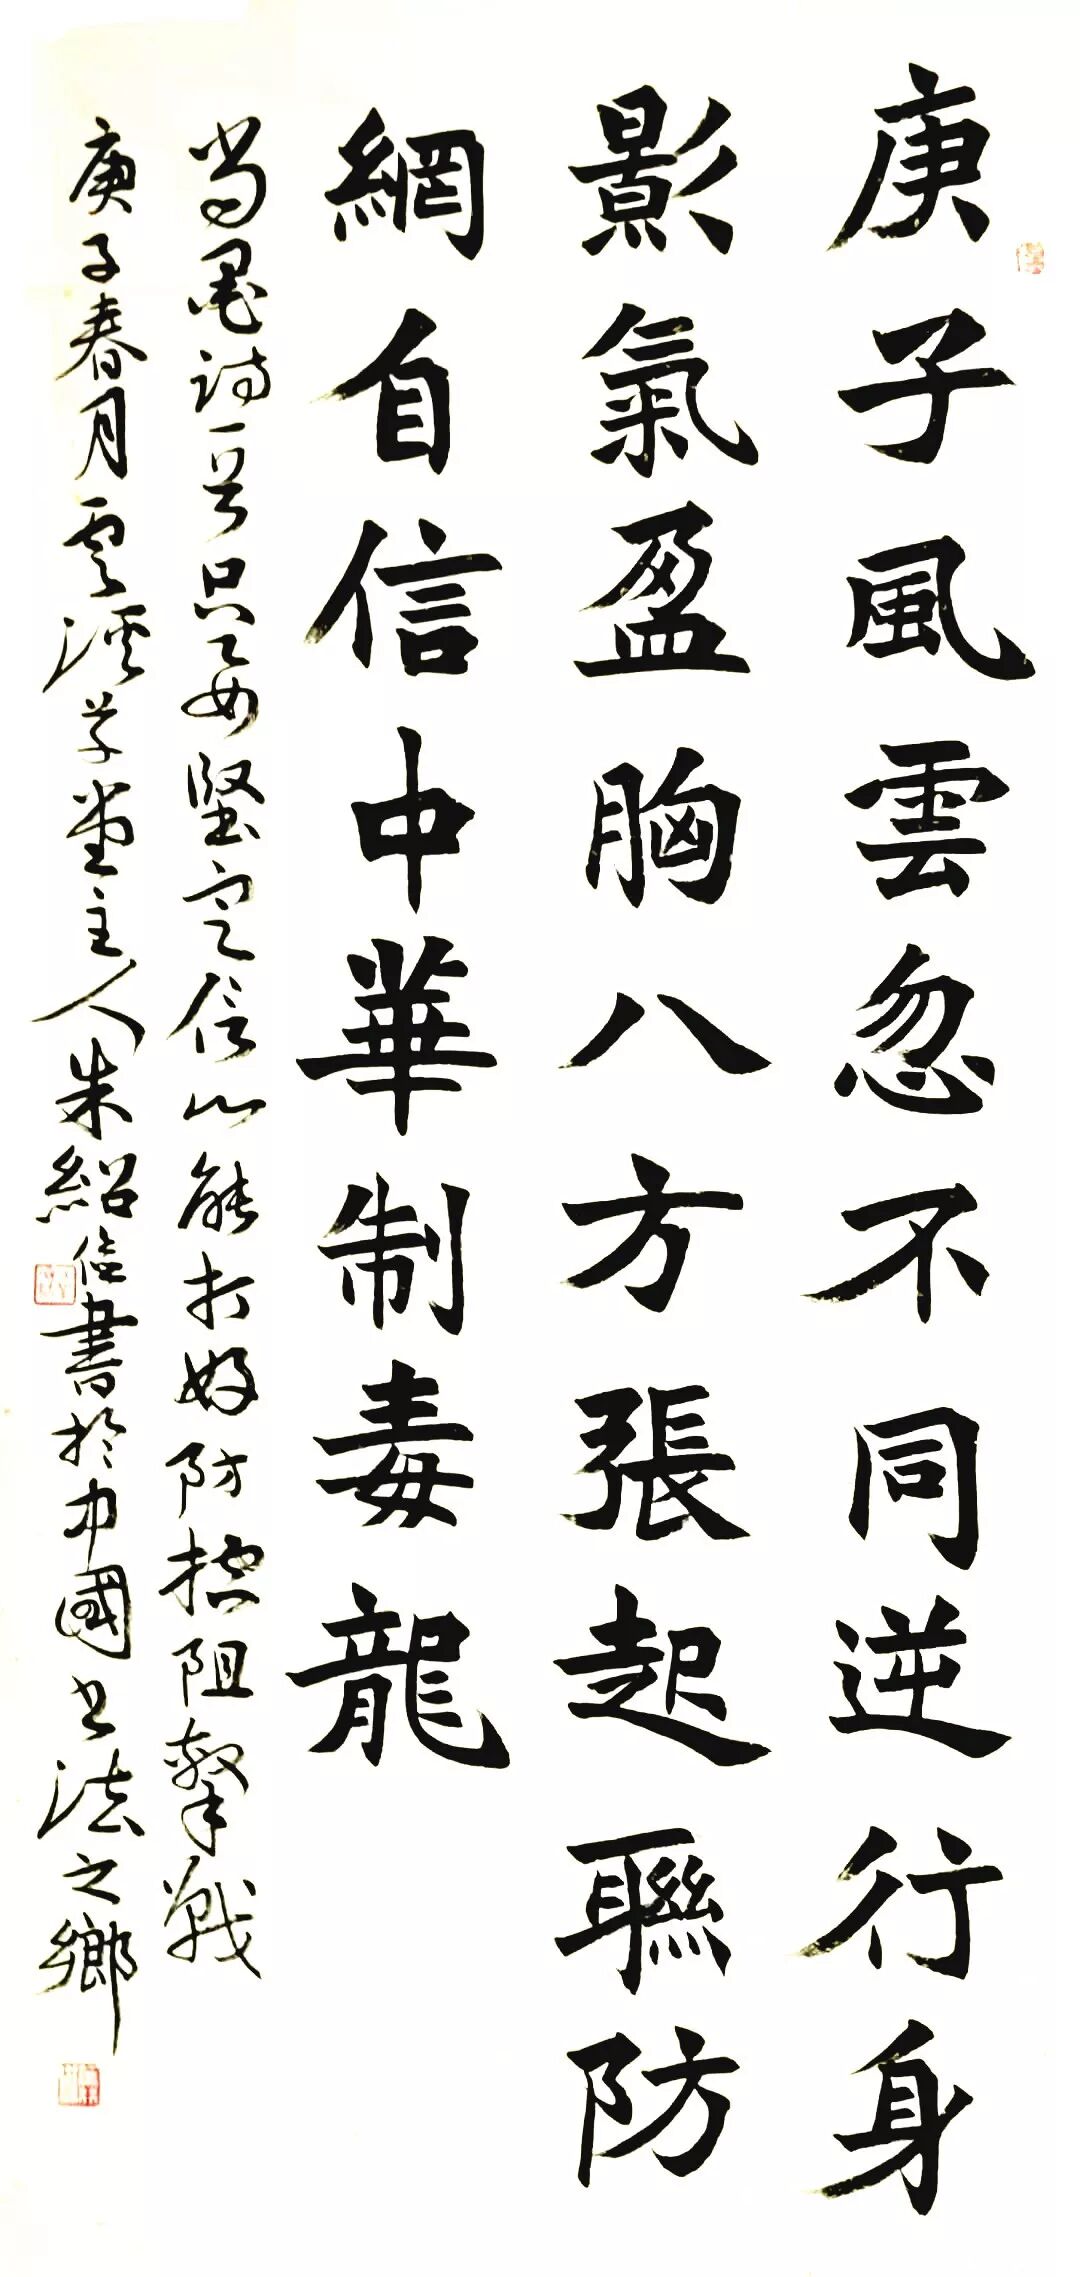 庚子風雲忽不同逆行身
影氣盈胸八方張起聯防
網自信中華制毒龍
尚墨詩一首只要堅定信心能打好防控阻擊戰
庚子春月雲溪草堂主人朱紹書於中國書法之鄉